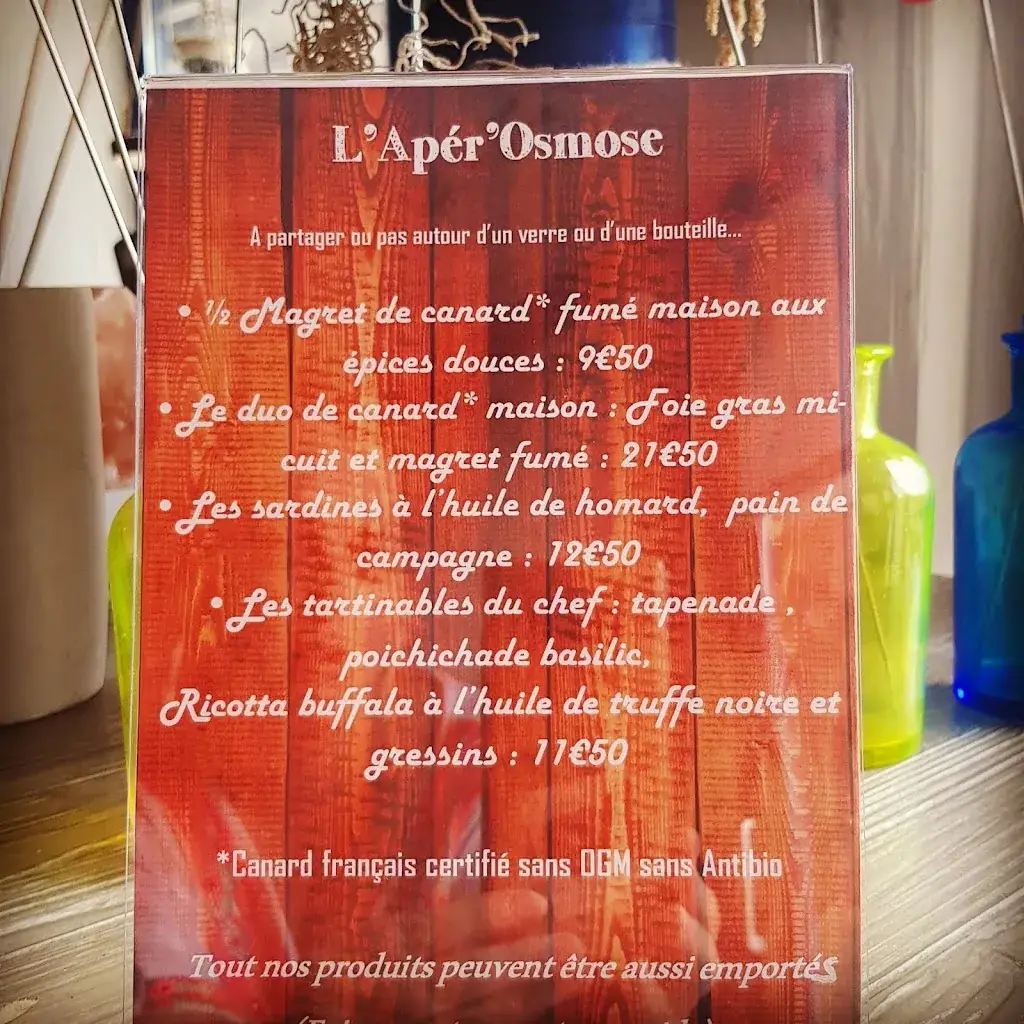 L'Apér'Osmose
A partager ou pas autour d'un verre ou d'une bouteille...
• ½ Magret de canard* fumé maison aux
épices douces : 9€50
• Le duo de canard* maison : Foie gras mi-
cuit et magret fumé : 21€50
• Les sardines à l'huile de homard, pain de
campagne : 12€50
• Les tartinables du chef : tapenade ,
poichichade basilic,
Ricotta buffala à l'huile de truffe noire et
gressins : 11€50
*Canard français certifié sans OGM sans Antibio
Tout nos produits peuvent être aussi emportés